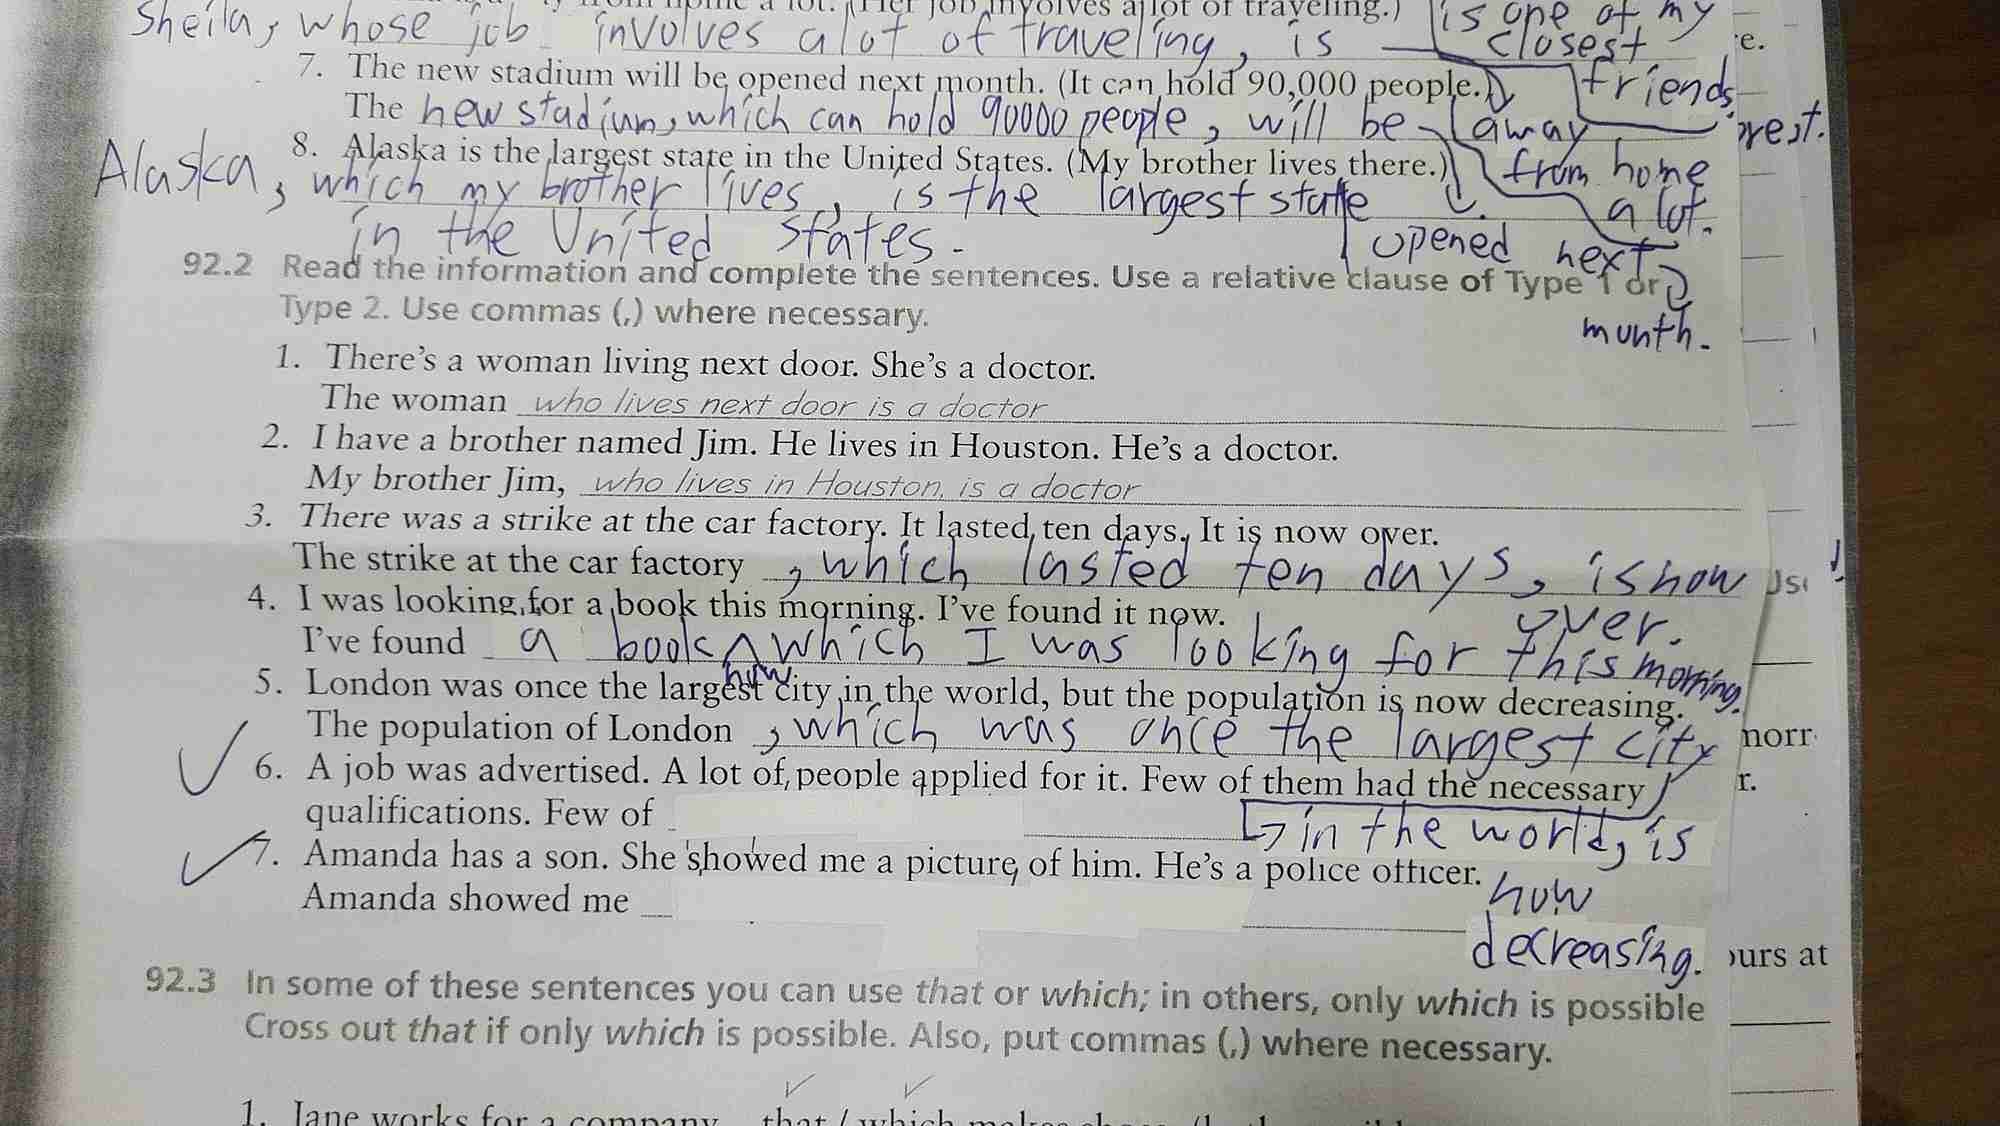 lot. (Her job involves a lot of traveling.)
Sheila, whose job involves a lot of traveling, is is one of my closest friends
7. The new stadium will be opened next month. (It can hold 90,000 people.)
The new stadium, which can hold 90000 people, will be away from home a lot.
8. Alaska is the largest state in the United States. (My brother lives there.)
Alaska, which my brother lives, is the largest state
in the United States.
opened next month.
92.2 Read the information and complete the sentences. Use a relative clause of Type 1 or
Type 2. Use commas (,) where necessary.
1. There's a woman living next door. She's a doctor.
The woman who lives next door is a doctor
2. I have a brother named Jim. He lives in Houston. He's a doctor.
My brother Jim, who lives in Houston, is a doctor
3. There was a strike at the car factory. It lasted ten days. It is now over.
The strike at the car factory , which lasted ten days, is now
over.
4. I was looking for a book this morning. I've found it now.
I've found a book now which I was looking for this morning.
5. London was once the largest city in the world, but the population is now decreasing.
The population of London , which was once the largest city
in the world, is
now
decreasing.
6. A job was advertised. A lot of people applied for it. Few of them had the necessary
qualifications. Few of
7. Amanda has a son. She showed me a picture of him. He's a police officer.
Amanda showed me
92.3 In some of these sentences you can use that or which; in others, only which is possible
Cross out that if only which is possible. Also, put commas (,) where necessary.
1. Jane works for a company that / which makes
e.
rest.
norr
r.
ours at